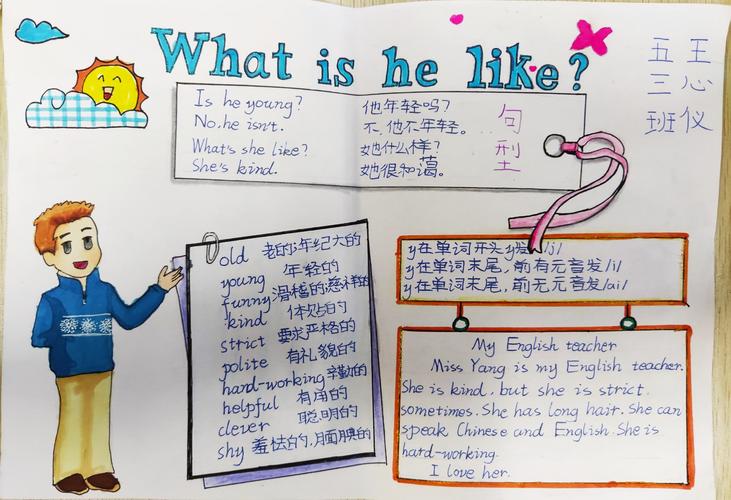 What is he like?
五三班
王心仪
Is he young? 他年轻吗?
No, he isn't. 不,他不年轻。
What's she like? 她什么样?
She's kind. 她很和蔼。
句型
old 老的;年纪大的
young 年轻的
funny 滑稽的;慈祥的
kind 体贴的
strict 要求严格的
polite 有礼貌的
hard-working 辛勤的
helpful 有用的
clever 聪明的
shy 羞怯的,腼腆的
y在单词开头y发/j/
y在单词末尾,前有元音发/i/
y在单词末尾,前无元音发/ai/
My English teacher
Miss Yang is my English teacher.
She is kind, but she is strict
sometimes. She has long hair. She can
speak Chinese and English. She is
hard-working.
I love her.